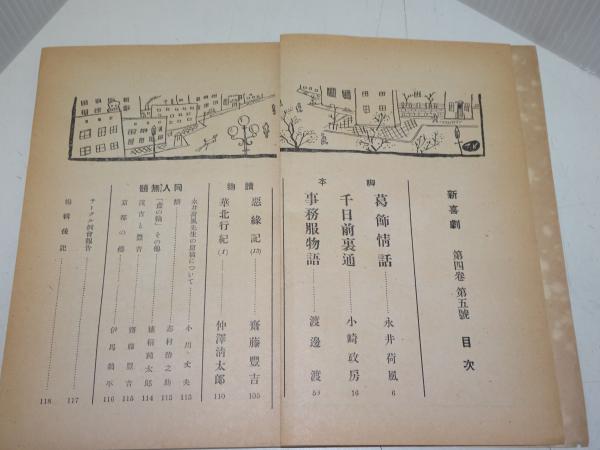 新喜劇 第四卷 第五號 目次
脚本
葛飾情話 永井荷風 6
千日前裏通 小崎政房 16
事務服物語 渡邊渡 59
讀物
惡緣記 (13) 齋藤豐吉 105
華北行紀 (1) 仲澤淸太郎 110
同人無題
永井荷風先生の原稿について 小川丈夫 113
志村治之助 113
その他 114
茂吉と豐吉 齋藤豐吉 115
京都の德 伊馬鵜平 116
サークル例會報告 117
編輯後記 118